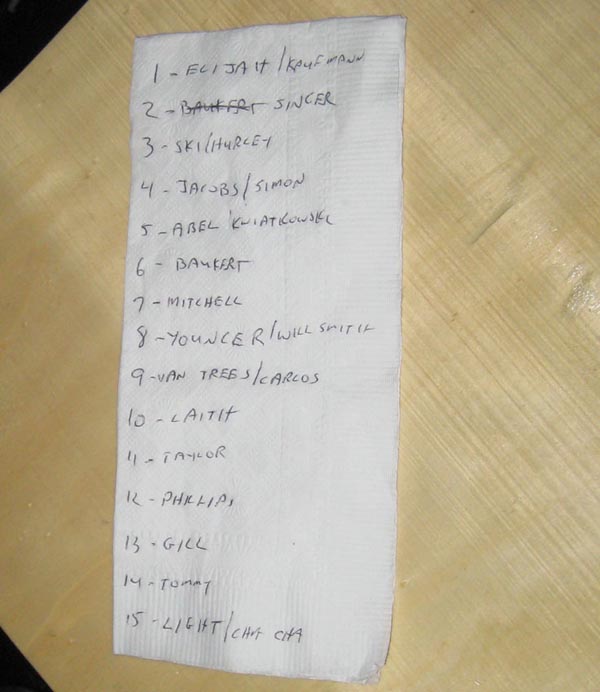 1 - ELIJAH/KAUFMANN
2 - BAUKERT SINGER
3 - SKI/HURLEY
4 - JACOBS/SIMON
5 - ABEL/KWIATKOWSKI
6 - BAUKERT
7 - MITCHELL
8 - YOUNGER/WILL SMITH
9 - VAN TREES/CARLOS
10 - LAITH
11 - TAYLOR
12 - PHILLIPS
13 - GILL
14 - TOMMY
15 - LIGHT/CHA CHA